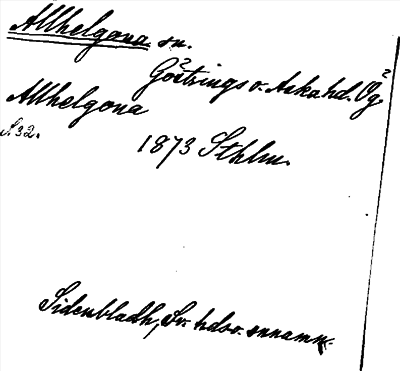 Allhelgona sn.
Göstrings o. Aska hd. Ög.
Allhelgona
S. 32.
1873 Sthlm.
Sidenbladh, Sv. hds o. snnamn.